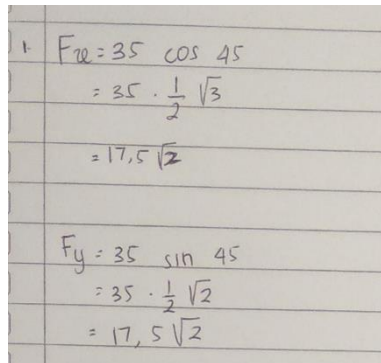 1. Fx = 35 cos 45
= 35 . 1/2 √3
= 17,5 √2
Fy = 35 sin 45
= 35 . 1/2 √2
= 17,5 √2